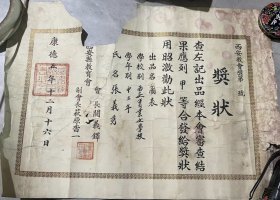 西安教會獎第　號
獎狀
查左記出品經本會審查結
果應列甲等合發給獎狀
用昭激勸此狀
出品名
學校別
學年別
氏名 張義秀
西安縣教育會
會長 關義鐸
副會長 萩原憲一
康德五年十二月十六日